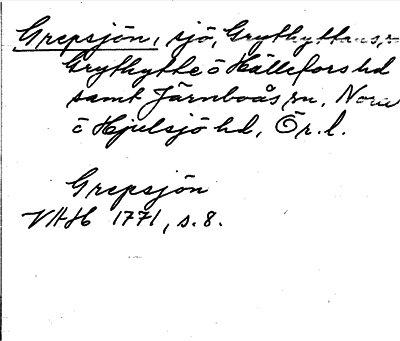 Grepsjön, sjö, Grythyttans sn,
Grythytte o Hällefors hd
samt Järnboås sn, Nora
o Hjulsjö hd, Ör. l.
Grepsjön
VAH 1771, s. 8.